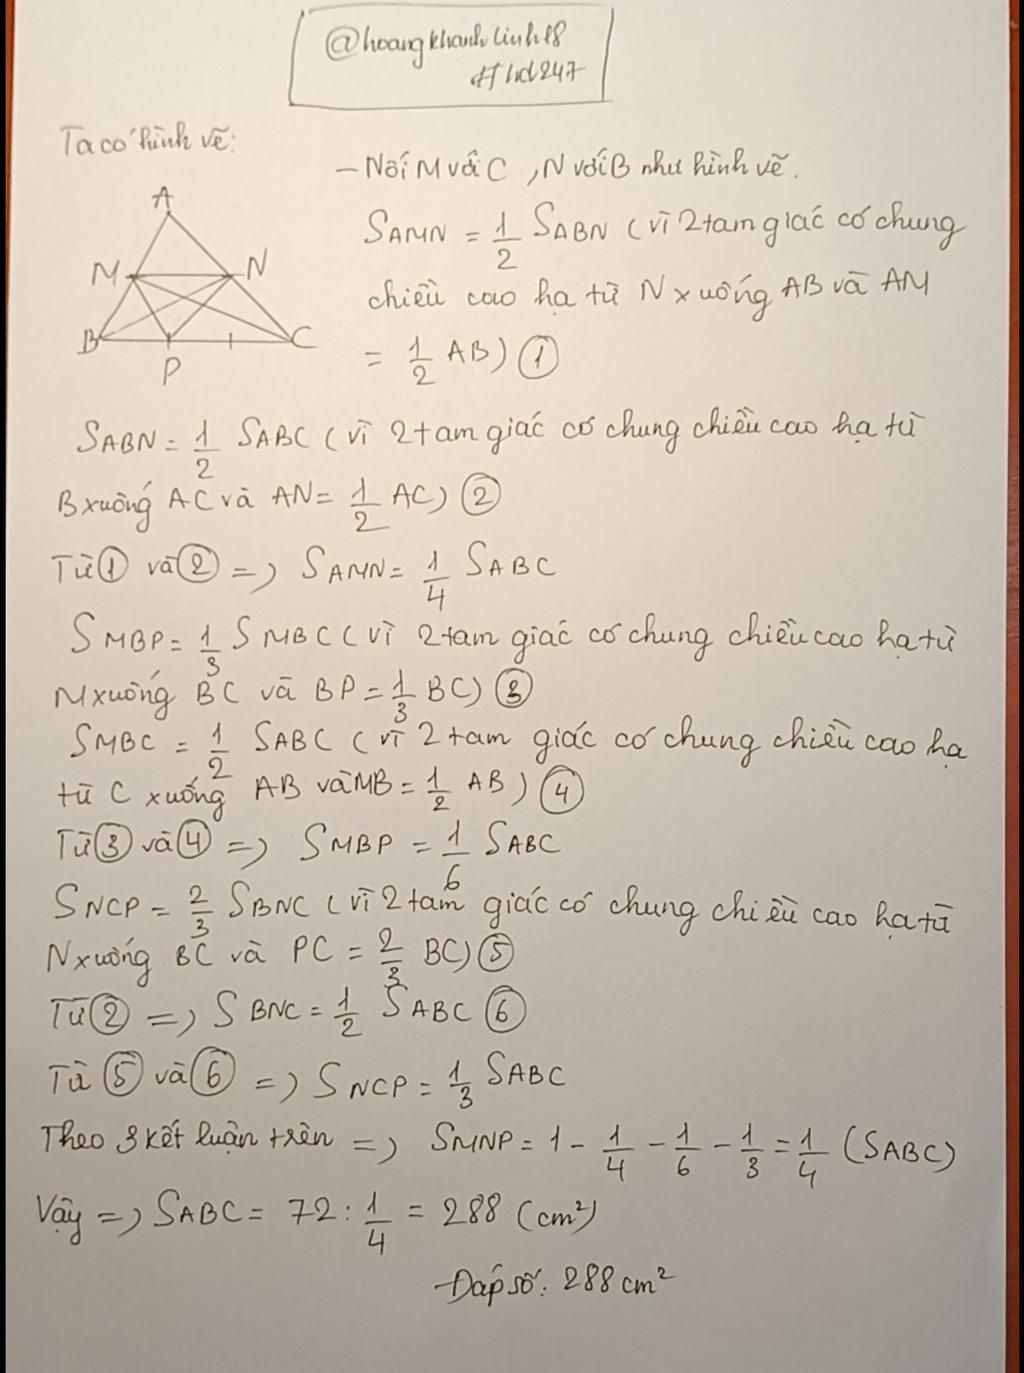 @hoangkhanhlinh18
#hd247
Ta có hình vẽ:
- Nối M với C, N với B như hình vẽ.
A
M N
B C
P
SAMN = 1/2 SABN (vì 2 tam giác có chung
chiều cao hạ từ N xuống AB và AM
= 1/2 AB) ①
SABN = 1/2 SABC (vì 2 tam giác có chung chiều cao hạ từ
B xuống AC và AN = 1/2 AC) ②
Từ ① và ② => SAMN = 1/4 SABC
SMBP = 1/3 SMBC (vì 2 tam giác có chung chiều cao hạ từ
M xuống BC và BP = 1/3 BC) ③
SMBC = 1/2 SABC (vì 2 tam giác có chung chiều cao hạ
từ C xuống AB và MB = 1/2 AB) ④
Từ ③ và ④ => SMBP = 1/6 SABC
SNCP = 2/3 SBNC (vì 2 tam giác có chung chiều cao hạ từ
N xuống BC và PC = 2/3 BC) ⑤
Từ ② => SBNC = 1/2 SABC ⑥
Từ ⑤ và ⑥ => SNCP = 1/3 SABC
Theo 3 kết luận trên => SMNP = 1 - 1/4 - 1/6 - 1/3 = 1/4 (SABC)
Vậy => SABC = 72 : 1/4 = 288 (cm²)
Đáp số: 288 cm²